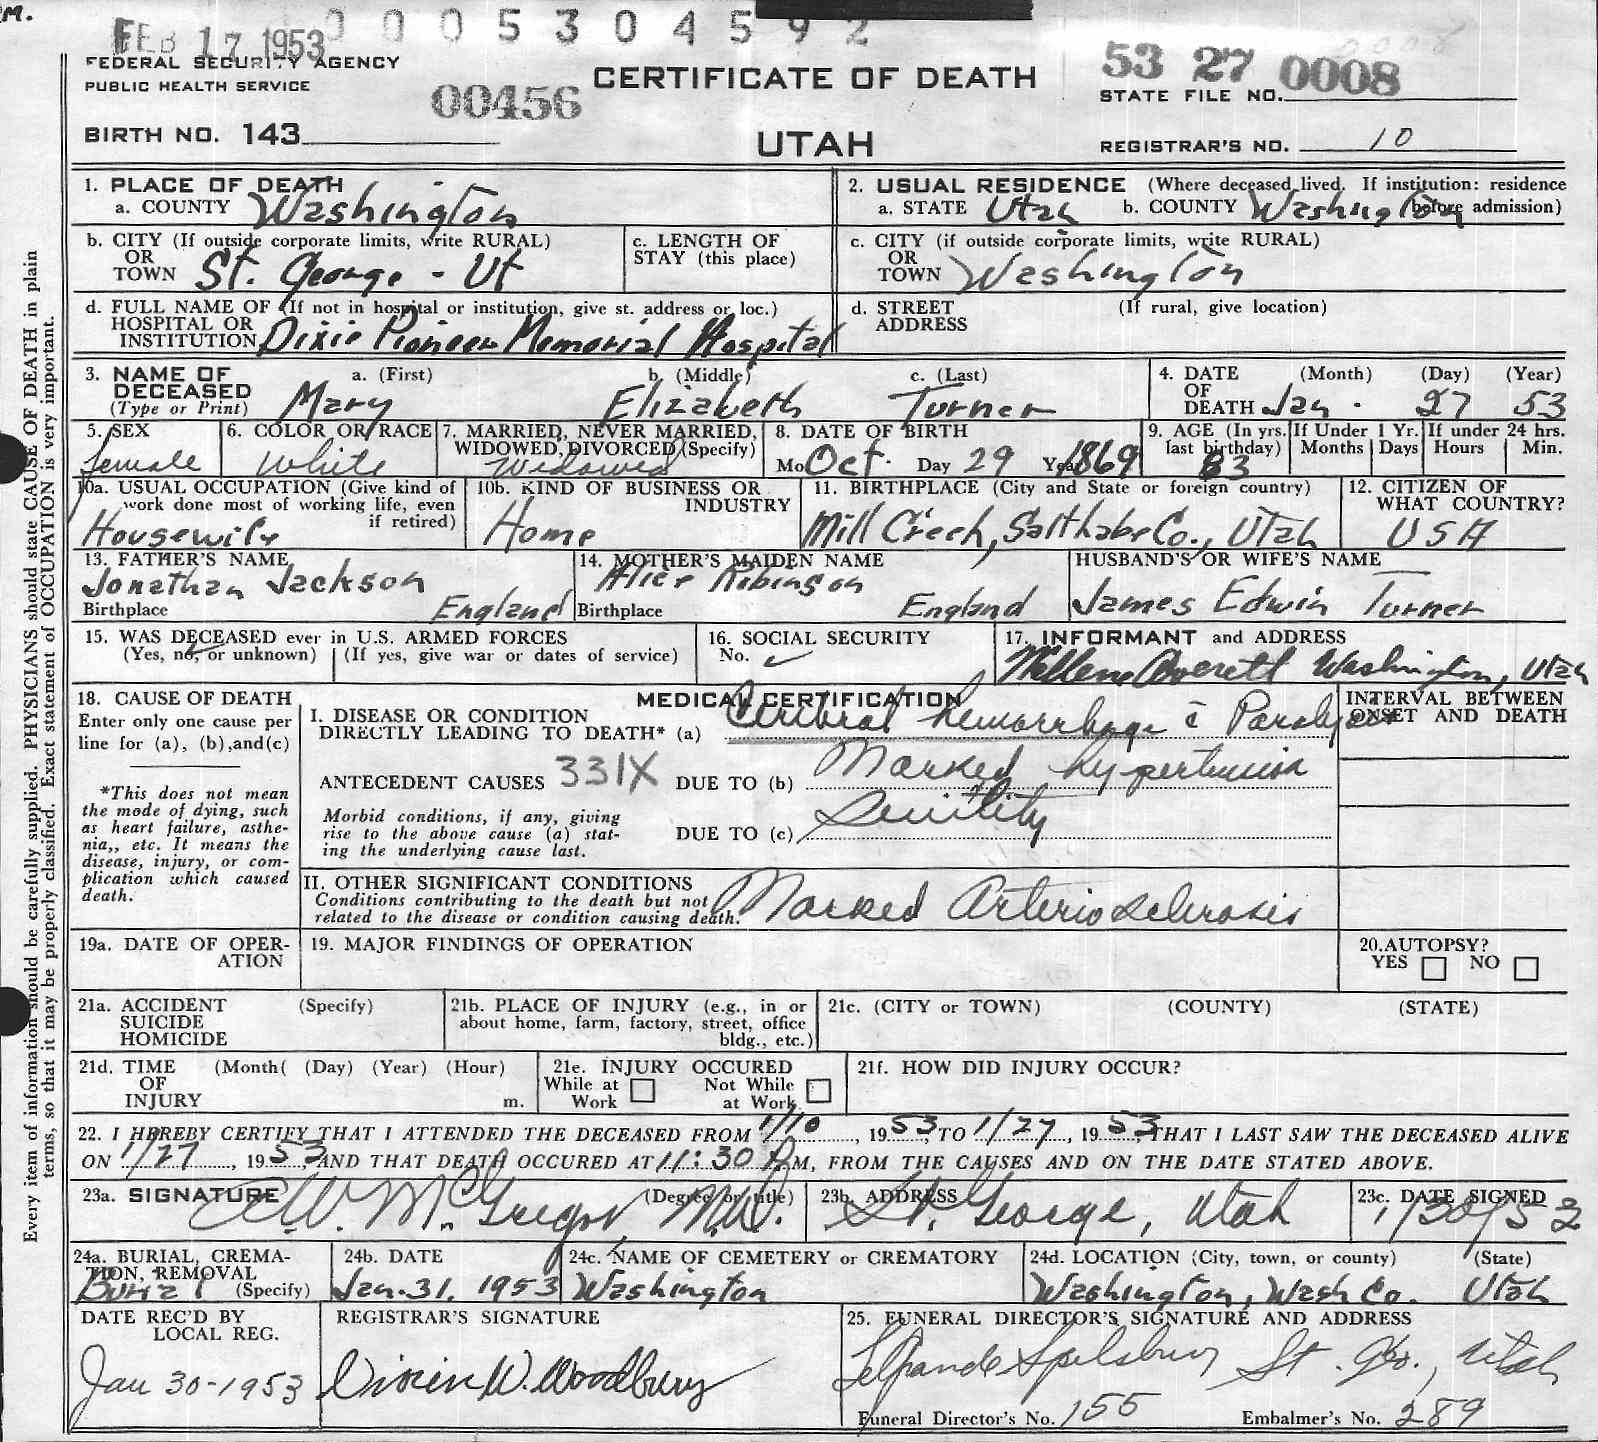 M.
FEB 17 1953
0 0 0 5 3 0 4 5 9 2
FEDERAL SECURITY AGENCY
PUBLIC HEALTH SERVICE
00456
CERTIFICATE OF DEATH
53 27 0008
STATE FILE NO.
BIRTH NO. 143
UTAH
REGISTRAR'S NO. 10
1. PLACE OF DEATH
a. COUNTY Washington
2. USUAL RESIDENCE (Where deceased lived. If institution: residence before admission)
a. STATE Utah b. COUNTY Washington
b. CITY (If outside corporate limits, write RURAL)
OR
TOWN St. George - Ut
c. LENGTH OF
STAY (this place)
c. CITY (if outside corporate limits, write RURAL)
OR
TOWN Washington
d. FULL NAME OF (If not in hospital or institution, give st. address or loc.)
HOSPITAL OR
INSTITUTION Dixie Pioneer Memorial Hospital
d. STREET (If rural, give location)
ADDRESS
3. NAME OF a. (First) b. (Middle) c. (Last)
DECEASED
(Type or Print) Mary Elizabeth Turner
4. DATE (Month) (Day) (Year)
OF
DEATH Jan. 27 53
5. SEX
female
6. COLOR OR RACE
White
7. MARRIED, NEVER MARRIED,
WIDOWED, DIVORCED (Specify)
Widowed
8. DATE OF BIRTH
Mo Oct. Day 29 Year 1869
9. AGE (In yrs. last birthday) 83
If Under 1 Yr. Months Days
If under 24 hrs. Hours Min.
10a. USUAL OCCUPATION (Give kind of
work done most of working life, even
if retired)
Housewife
10b. KIND OF BUSINESS OR
INDUSTRY
Home
11. BIRTHPLACE (City and State or foreign country)
Mill Creek, Salt Lake Co., Utah
12. CITIZEN OF
WHAT COUNTRY?
USA
13. FATHER'S NAME
Jonathan Jackson
Birthplace England
14. MOTHER'S MAIDEN NAME
Alice Robinson
Birthplace England
HUSBAND'S OR WIFE'S NAME
James Edwin Turner
15. WAS DECEASED ever in U.S. ARMED FORCES
(Yes, no, or unknown) (If yes, give war or dates of service)
16. SOCIAL SECURITY
No.
17. INFORMANT and ADDRESS
Averett Washington, Utah
18. CAUSE OF DEATH
Enter only one cause per
line for (a), (b), and (c)
*This does not mean
the mode of dying, such
as heart failure, asthe-
nia,, etc. It means the
disease, injury, or com-
plication which caused
death.
MEDICAL CERTIFICATION
I. DISEASE OR CONDITION
DIRECTLY LEADING TO DEATH* (a) Cerebral hemorrhage c̄ Paralysis
ANTECEDENT CAUSES 331X DUE TO (b) Marked hypertension
Morbid conditions, if any, giving
rise to the above cause (a) stat-
ing the underlying cause last.
DUE TO (c) Senility
INTERVAL BETWEEN
ONSET AND DEATH
II. OTHER SIGNIFICANT CONDITIONS
Conditions contributing to the death but not
related to the disease or condition causing death.
Marked Arteriosclerosis
19a. DATE OF OPER-
ATION
19. MAJOR FINDINGS OF OPERATION
20. AUTOPSY?
YES NO
21a. ACCIDENT (Specify)
SUICIDE
HOMICIDE
21b. PLACE OF INJURY (e.g., in or
about home, farm, factory, street, office
bldg., etc.)
21c. (CITY or TOWN) (COUNTY) (STATE)
21d. TIME (Month( (Day) (Year) (Hour)
OF
INJURY m.
21e. INJURY OCCURED
While at Work Not While at Work
21f. HOW DID INJURY OCCUR?
22. I HEREBY CERTIFY THAT I ATTENDED THE DECEASED FROM 1/10, 1953, TO 1/27, 1953, THAT I LAST SAW THE DECEASED ALIVE
ON 1/27, 1953, AND THAT DEATH OCCURED AT 11:30 P.M, FROM THE CAUSES AND ON THE DATE STATED ABOVE.
23a. SIGNATURE (Degree or title)
McGregor, M.D.
23b. ADDRESS
St. George, Utah
23c. DATE SIGNED
1/30/53
24a. BURIAL, CREMA-
TION, REMOVAL
(Specify) Burial
24b. DATE
Jan. 31, 1953
24c. NAME OF CEMETERY or CREMATORY
Washington
24d. LOCATION (City, town, or county) (State)
Washington, Wash Co. Utah
DATE REC'D BY
LOCAL REG.
Jan 30-1953
REGISTRAR'S SIGNATURE
W. Woodbury
25. FUNERAL DIRECTOR'S SIGNATURE AND ADDRESS
Spilsbury St. Geo., Utah
Funeral Director's No. 155 Embalmer's No. 289
Every item of information should be carefully supplied. PHYSICIANS should state CAUSE OF DEATH in plain
terms, so that it may be properly classified. Exact statement of OCCUPATION is very important.